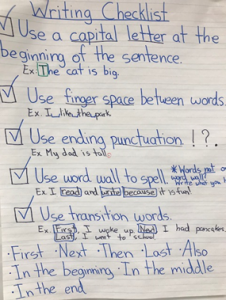 Writing Checklist
Use a capital letter at the
beginning of the sentence.
Ex. The cat is big.
Use finger space between words.
Ex. I like the park
Use ending punctuation !?.
Ex. My dad is tall.
Use word wall to spell.
*Words not on
word wall?
Write what you
Ex. I read and write because it is fun!
Use transition words.
Ex. First, I woke up. Next I had pancakes.
Last, I went to school
·First ·Next ·Then ·Last ·Also
·In the beginning ·In the middle
·In the end